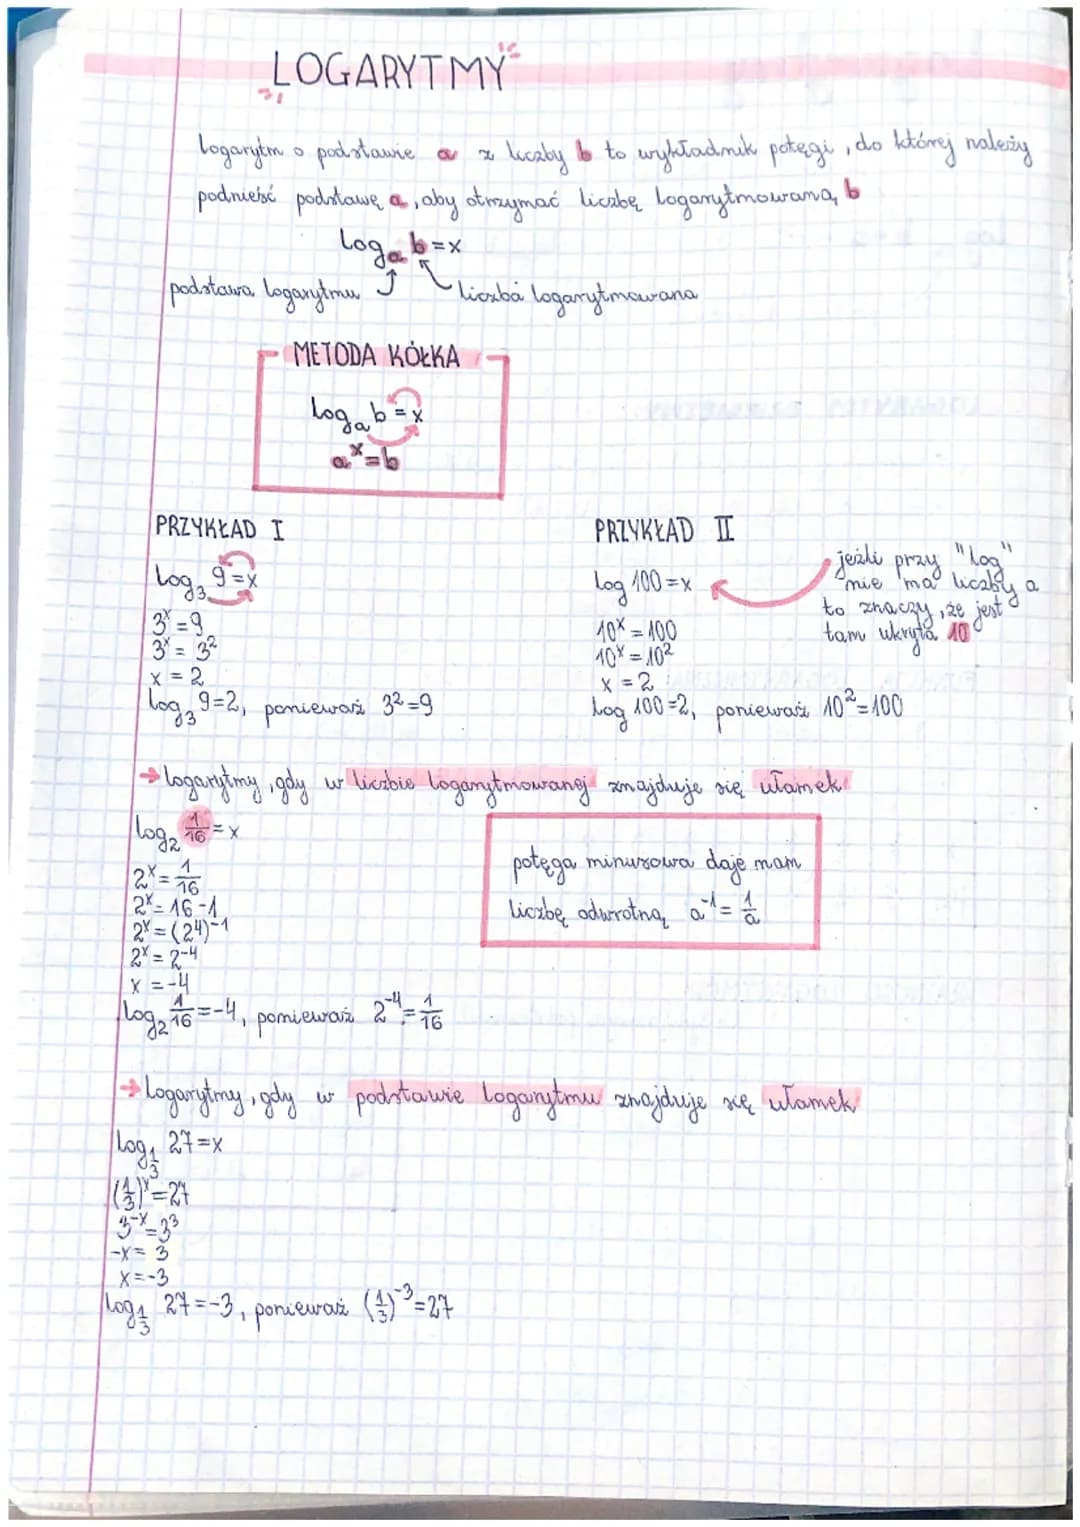 LOGARYTMY
Logarytm o podstawie a z liczby b to wykładnik potęgi, do której należy
podnieść podstawę a, aby otrzymać liczbę logarytmowaną b
log_a b = x
podstawa logarytmu
liczba logarytmowana
METODA KÓŁKA
log_a b = x
a^x = b
PRZYKŁAD I
log_3 9 = x
3^x = 9
3^x = 3^2
x = 2
log_3 9 = 2, ponieważ 3^2 = 9
PRZYKŁAD II
log 100 = x
jeżli przy "log"
nie ma liczby a
to znaczy, że jest
tam ukryta 10
10^x = 100
10^x = 10^2
x = 2
log 100 = 2, ponieważ 10^2 = 100
→ logarytmy, gdy w liczbie logarytmowanej znajduje się ułamek
log_2 1/16 = x
2^x = 1/16
2^x = 16 -1
2^x = (2^4)^-1
2^x = 2^-4
x = -4
log_2 1/16 = -4, ponieważ 2^-4 = 1/16
potęga minusowa daje nam
liczbę odwrotną a^-1 = 1/a
→ logarytmy, gdy w podstawie logarytmu znajduje się ułamek
log_1/3 27 = x
(1/3)^x = 27
3^-x = 3^3
-x = 3
x = -3
log_1/3 27 = -3, ponieważ (1/3)^-3 = 27